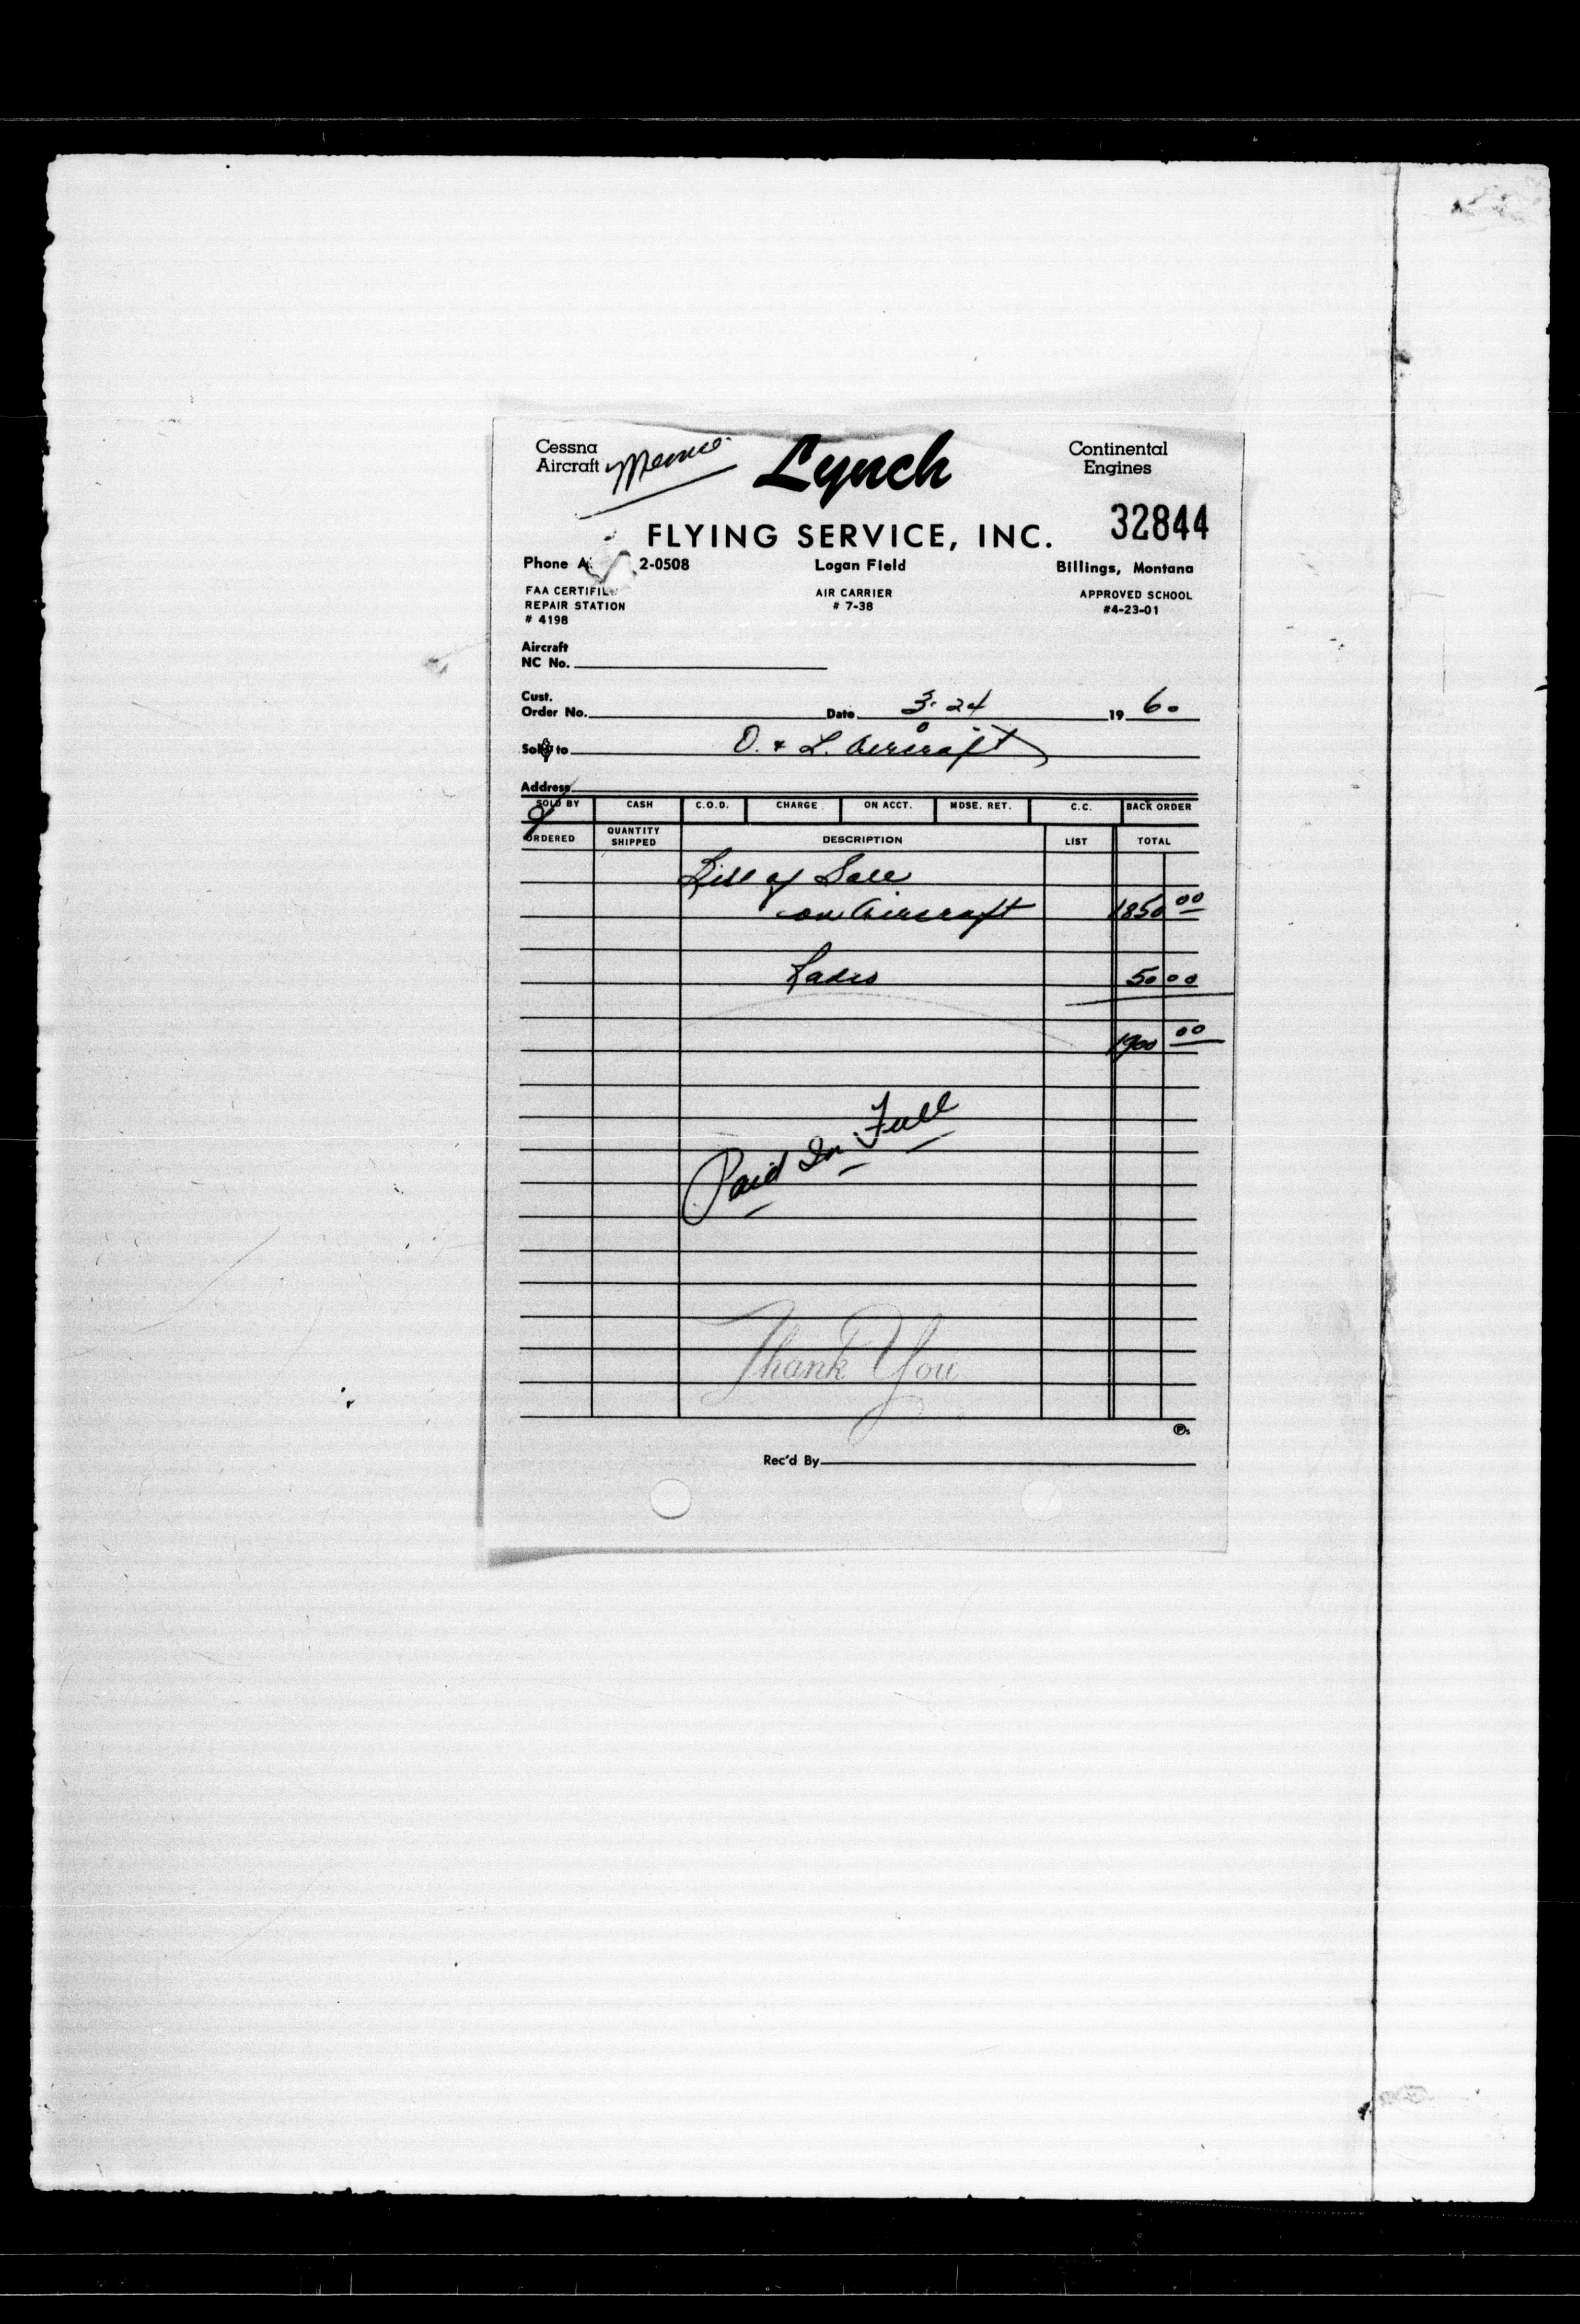 Cessna Aircraft
Memo
Lynch
Continental Engines
FLYING SERVICE, INC.
32844
Phone A 2-0508 Logan Field Billings, Montana
FAA CERTIFI
REPAIR STATION
# 4198
AIR CARRIER
# 7-38
APPROVED SCHOOL
#4-23-01
Aircraft
NC No.
Cust.
Order No. Date 3-24 19 60
Sold to O. & L. Aircraft
Address
SOLD BY CASH C.O.D. CHARGE ON ACCT. MDSE. RET. C.C. BACK ORDER
ORDERED QUANTITY SHIPPED DESCRIPTION LIST TOTAL
Bill of Sale
on Aircraft 1850 00
Radio 50 00
1900 00
Paid In Full
Thank You
Rec'd By